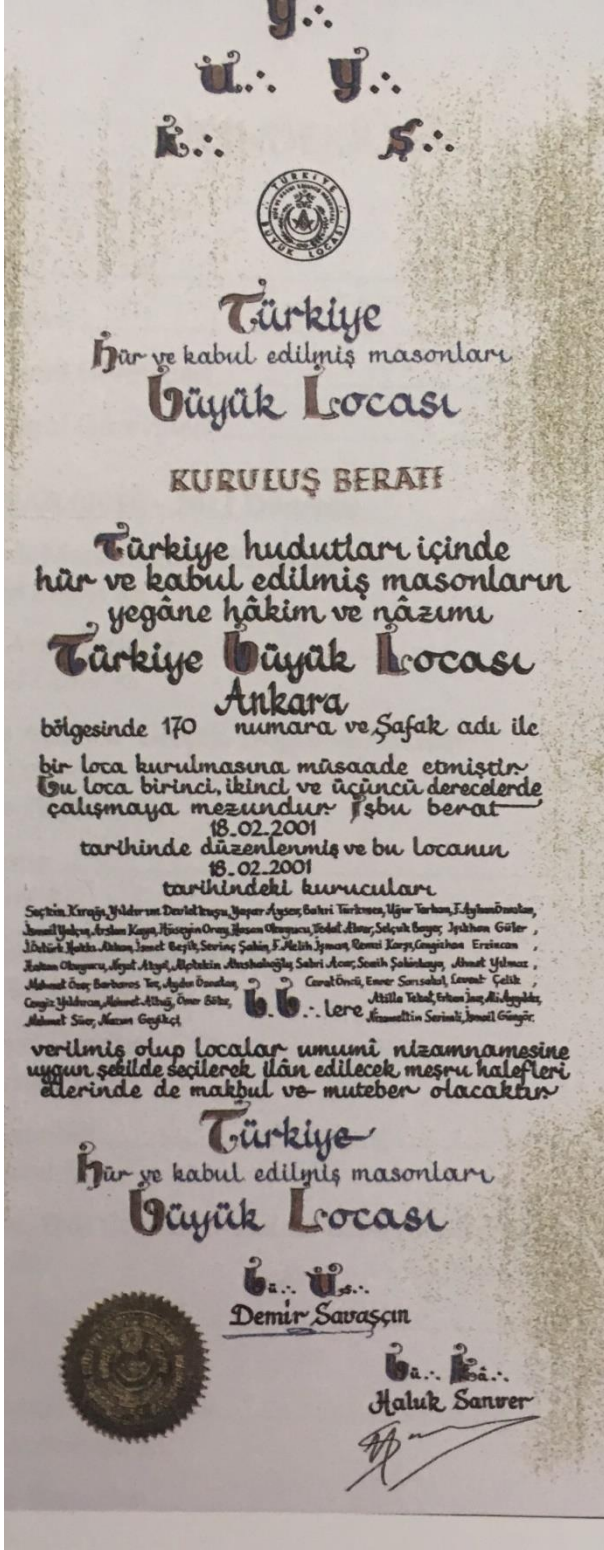 y∴
ü∴ y∴
k∴ ş∴
TÜRKİYE
BÜYÜK LOCASI
Türkiye
hür ve kabul edilmiş masonları
Büyük Locası
KURULUŞ BERATI
Türkiye hudutları içinde
hür ve kabul edilmiş masonların
yegâne hâkim ve nâzımı
Türkiye Büyük Locası
Ankara
bölgesinde 170 numara ve Şafak adı ile
bir loca kurulmasına müsaade etmiştir.
Bu loca birinci, ikinci ve üçüncü derecelerde
çalışmaya mezundur. İşbu berat
18.02.2001
tarihinde düzenlenmiş ve bu locanın
18.02.2001
tarihindeki kurucuları
Seçkin Yıldırım Yaşar Aysev, Bahri Türkmen, Uğur Tarhan,
İsmail Yalçın, Arslan Kaya, Hüseyin Oray, Hasan Okuyucu, Vedat Selçuk Güler,
Hakkı İsmet Beşik, Sevinç Şahin, F. Melih Remzi Cengizhan Erzincan
Hakan Okuyucu, Alptekin Sabri Acar, Semih Ahmet Yılmaz,
Mehmet Barbaros Aydın Canat Öncü, Enver Levent Çelik,
Cengiz Yıldırım, Mehmet Ömer B.B∴lere Atilla Erkan Ali
Mehmet Nazım Geyikçi Nizamettin İsmail Güngör.
verilmiş olup localar umumî nizamnamesine
uygun şekilde seçilerek ilân edilecek meşru halefleri
ellerinde de makbul ve muteber olacaktır.
Türkiye
hür ve kabul edilmiş masonları
Büyük Locası
Bü∴ Üs∴
Demir Savaşçın
Bü∴ Kâ∴
Haluk Sanver